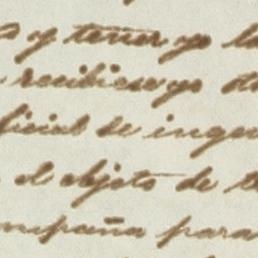 y tener yo la
recibiese yo de
ficial de inge
el objeto de t
mpaña para